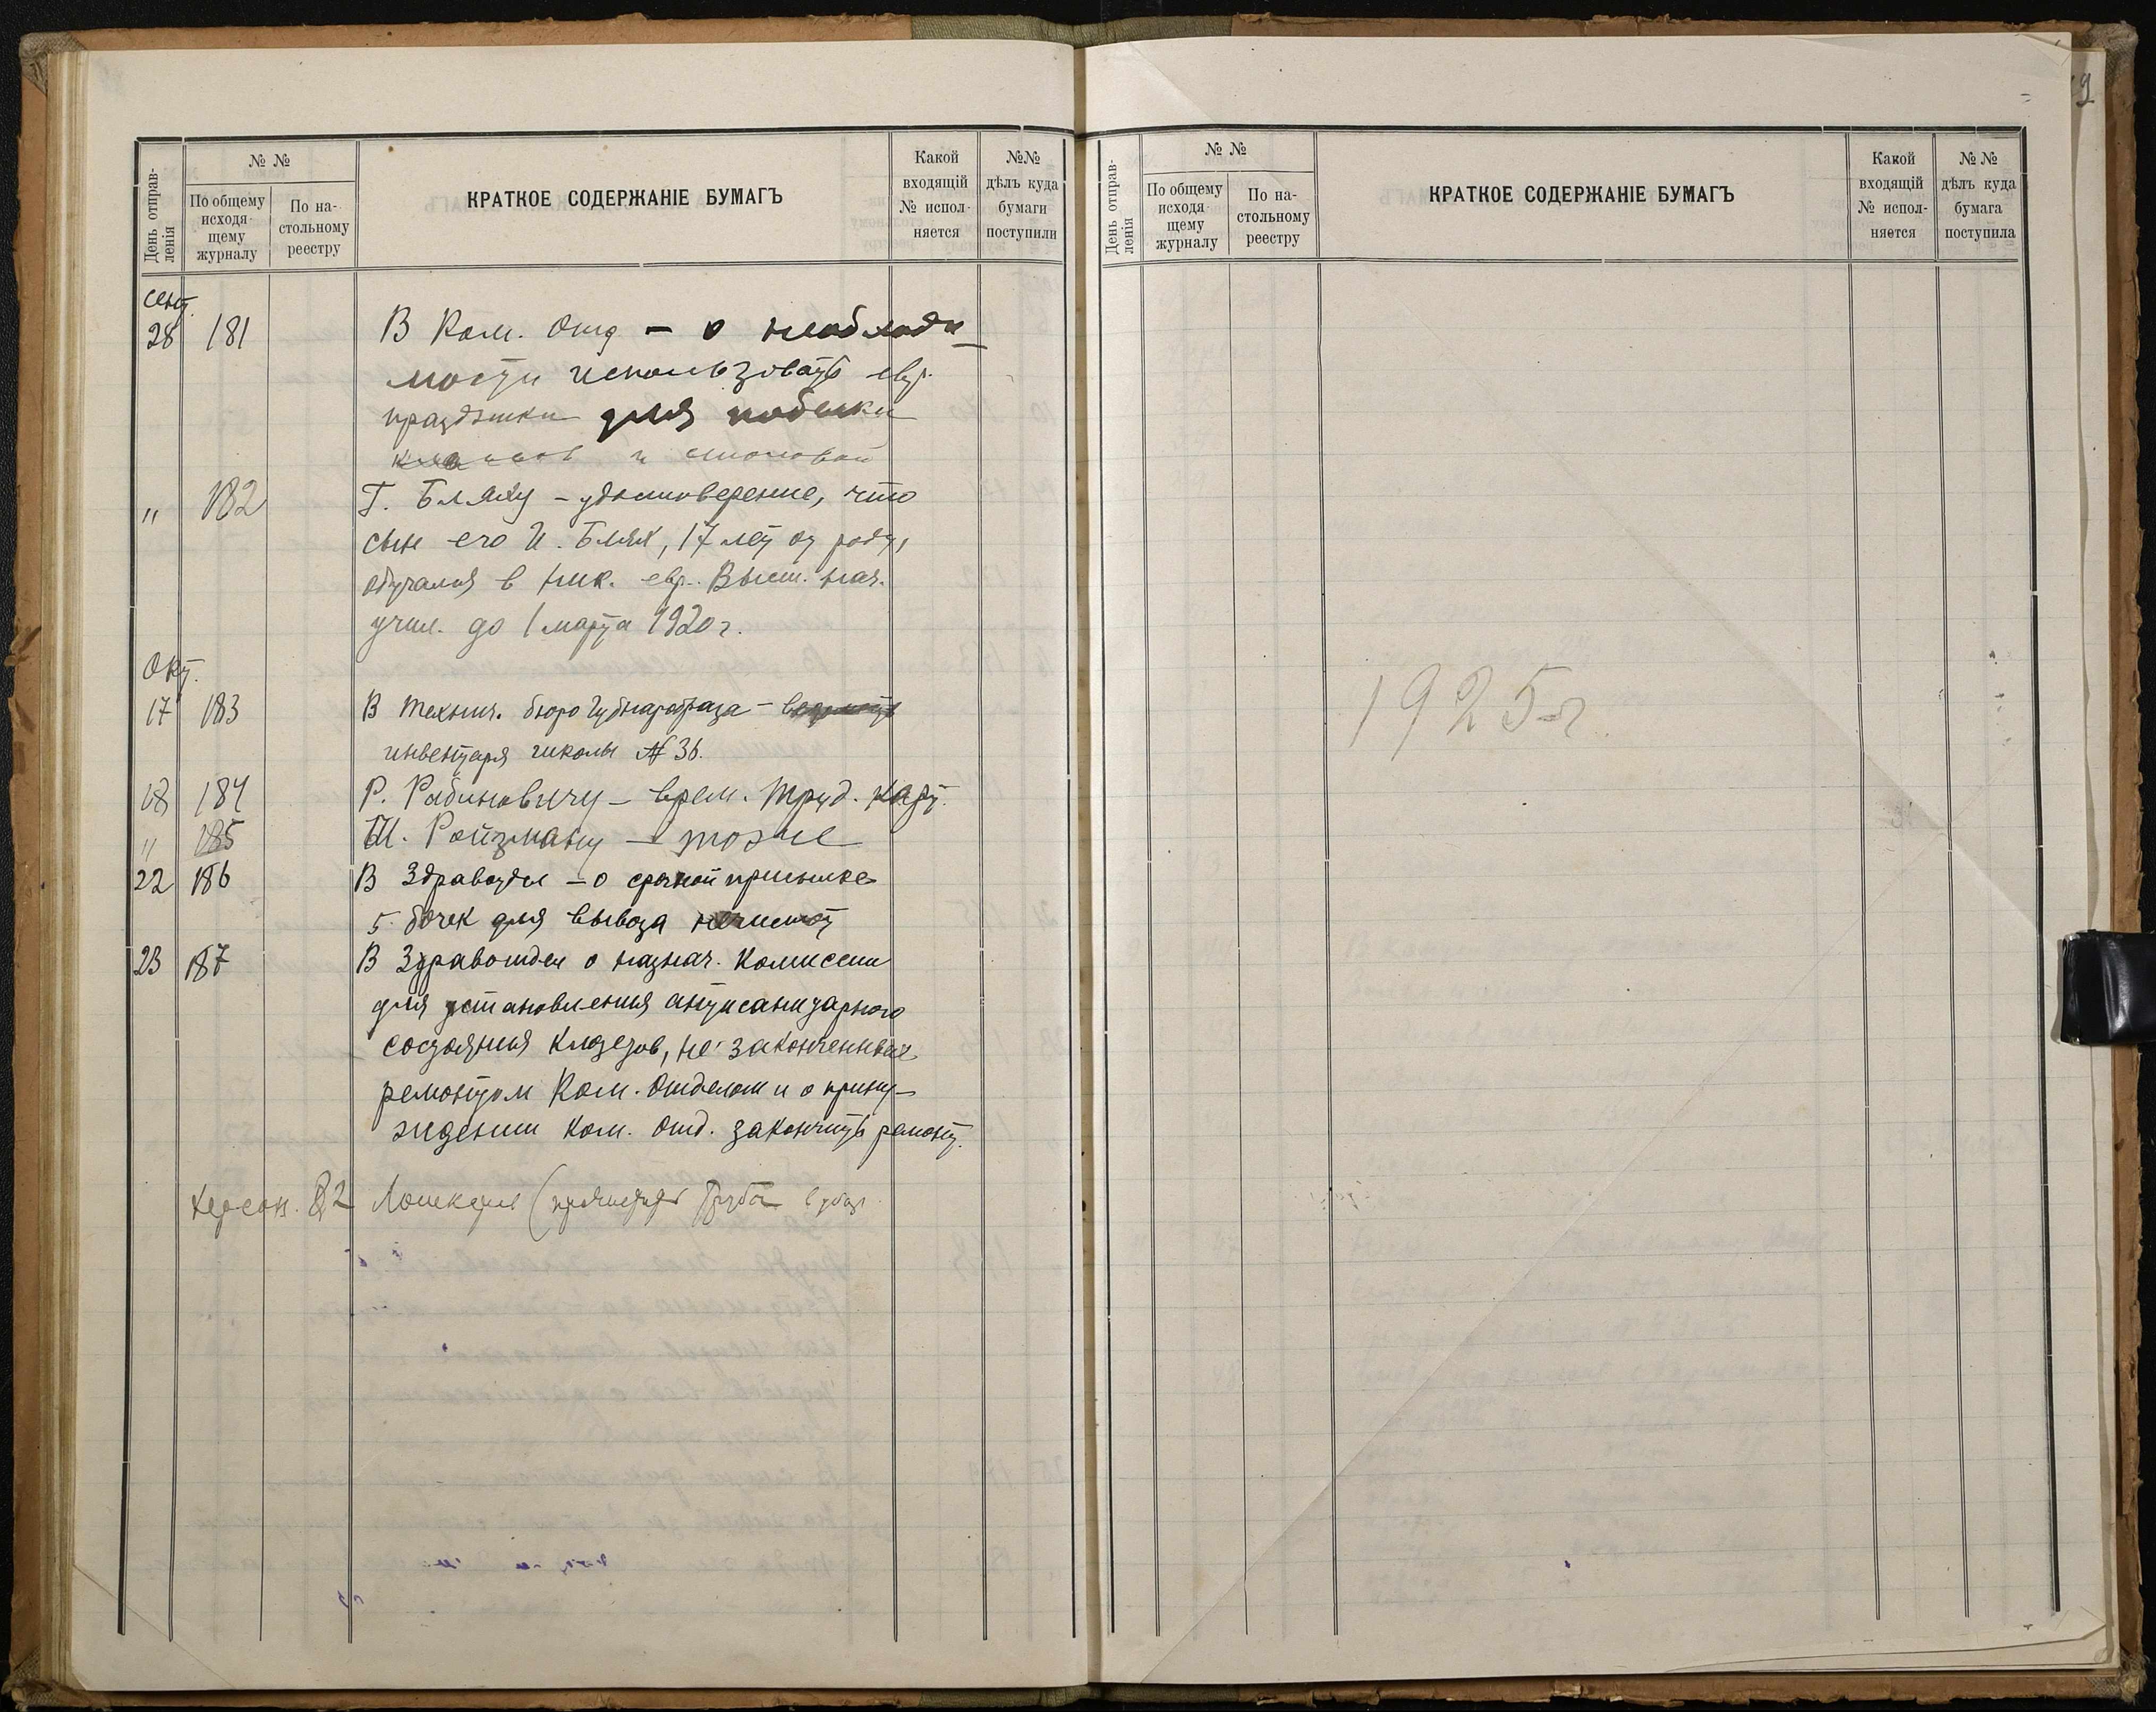 День отправ-
ленія
№ №
По общему
исходя-
щему
журналу
По на-
стольному
реестру
КРАТКОЕ СОДЕРЖАНІЕ БУМАГЪ
Какой
входящій
№ испол-
няется
№№
дѣлъ куда
бумаги
поступили
сент.
28 181 В Ком. Отд - о необходи
мости использовать евр.
праздники для побелки
классов и столовой
" 182 Г. Бляху - удостоверение, что
сын его И. Блях, 17 лет от роду,
обучался в Ник. евр. Высш. нач.
учил. до 1 марта 1920 г.
Окт.
17 183 В технич. бюро Губнаробраза - ведомость
инвентаря школы № 36.
18 184 Р. Рабиновичу - врем. Труд. карт.
" 185 Ш. Ройзману - тоже
22 186 В Здравотдел - о срочной присылке
5 бочек для вывоза нечистот
23 187 В Здравотдел о назнач. Комиссии
для установления антисанитарного
состояния клозетов, не законченных
ремонтом Ком. Отделом и о прину-
ждении Ком. Отд. закончить ремонт.
Херсон. 82
День отправ-
ленія
№ №
По общему
исходя-
щему
журналу
По на-
стольному
реестру
КРАТКОЕ СОДЕРЖАНІЕ БУМАГЪ
Какой
входящій
№ испол-
няется
№ №
дѣлъ куда
бумага
поступила
1925 г.